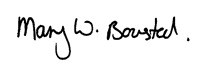 Mary W. Bousted.